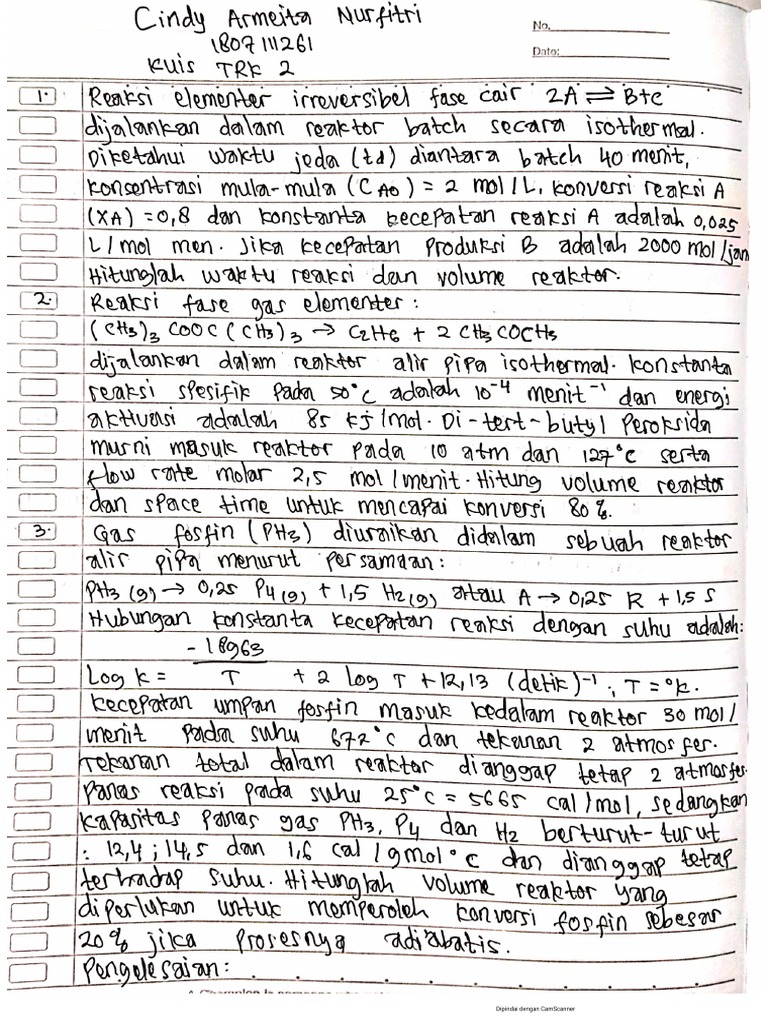 Cindy Armeita Nurfitri
1807111261
Kuis TRK 2
No.
Date:
1. Reaksi elementer irreversibel fase cair 2A ⇌ B+C
dijalankan dalam reaktor batch secara isothermal.
Diketahui waktu jeda (td) diantara batch 40 menit,
konsentrasi mula-mula (CA0) = 2 mol/L, konversi reaksi A
(XA) = 0,8 dan konstanta kecepatan reaksi A adalah 0,025
L/mol men. Jika kecepatan Produksi B adalah 2000 mol/jam
Hitunglah waktu reaksi dan volume reaktor.
2. Reaksi fase gas elementer:
(CH3)3 COOC (CH3)3 → C2H6 + 2 CH3COCH3
dijalankan dalam reaktor alir pipa isothermal. konstanta
reaksi spesifik pada 50°C adalah 10⁻⁴ menit⁻¹ dan energi
aktivasi adalah 85 kj/mol. Di-tert-butyl Peroksida
murni masuk reaktor pada 10 atm dan 127°C serta
flow rate molar 2,5 mol/menit. Hitung volume reaktor
dan space time untuk mencapai konversi 80%.
3. Gas fosfin (PH3) diuraikan didalam sebuah reaktor
alir pipa menurut persamaan:
PH3(g) → 0,25 P4(g) + 1,5 H2(g) atau A → 0,25 R + 1,5 S
Hubungan konstanta kecepatan reaksi dengan suhu adalah:
Log k = -18963/T + 2 log T + 12,13 (detik)⁻¹; T = °k.
kecepatan umpan fosfin masuk kedalam reaktor 30 mol/
menit pada suhu 672°C dan tekanan 2 atmosfer.
Tekanan total dalam reaktor dianggap tetap 2 atmosfer.
Panas reaksi pada suhu 25°C = 5665 cal/mol, sedangkan
kapasitas panas gas PH3, P4 dan H2 berturut-turut
: 12,4 ; 14,5 dan 1,6 cal/gmol°C dan dianggap tetap
terhadap suhu. Hitunglah volume reaktor yang
diperlukan untuk memperoleh konversi fosfin sebesar
20% jika prosesnya adiabatis.
Pengelesaian: . . . . . . . . .
Dipindai dengan CamScanner